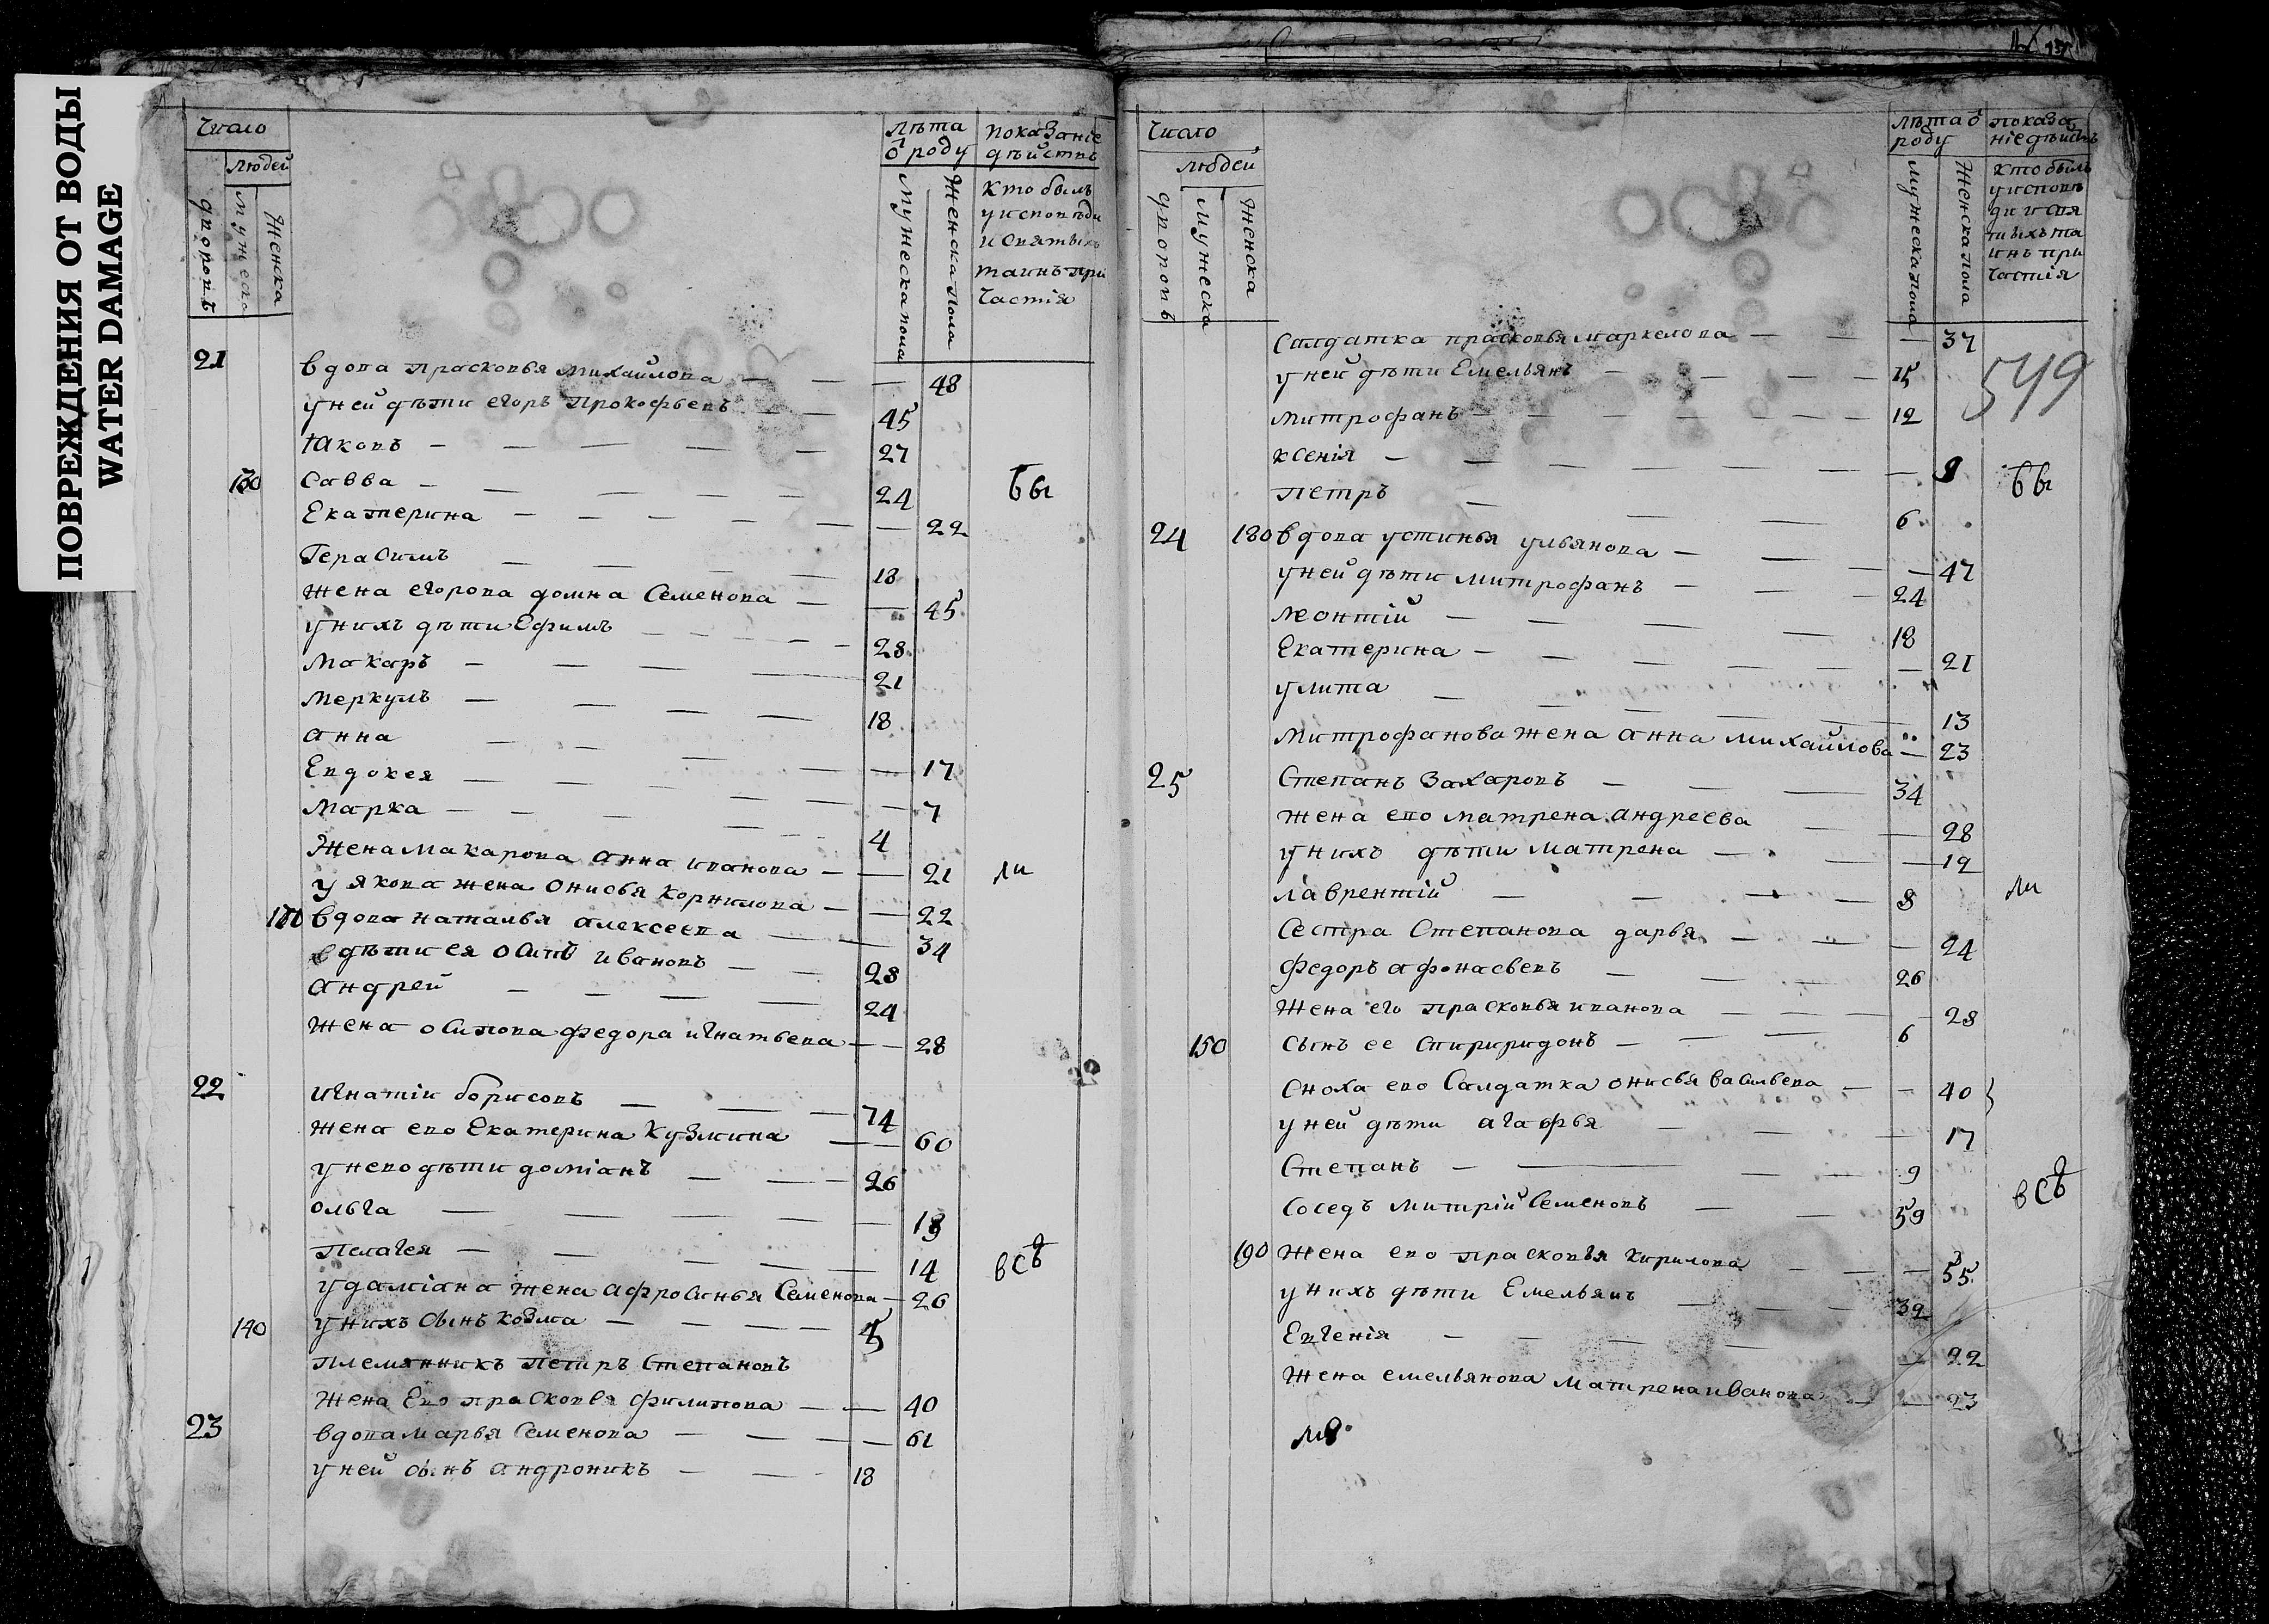 ПОВРЕЖДЕНИЯ ОТ ВОДЫ
WATER DAMAGE
Число
людей
дворовъ
мужеска
Женска
лѣта
ѿ роду
мужеска пола
Женска пола
показаніе
дѣйствъ
кто былъ
у исповѣди
и святыхъ
таинъ при
частія
21 вдова прасковья михайлова — — — 48
у ней дѣти егоръ Прокофьевъ — — 45
Iаковъ — — — — — 27
130 Савва — — — — — 24 бы
Екатерина — — — — — — 22
Герасимъ — — — — 18
жена егорова домна Семенова — — 45
у нихъ дѣти Ефимъ — — — — 28
Макаръ — — — — 21
Меркулъ — — — — — 18
анна — — — — — — 17
Евдокея — — — — — — 7
Марка — — — — — — 4
Жена макарова анна иванова — — 21 ли
у якова жена онисья корнилова — — 22
вдова наталья алексеева — — 34
дѣти ея осипъ ивановъ — — 28
андрей — — — — 24
жена осипова федора игнатьева — — 28
22 игнатіи борисовъ — — — 74
жена ево Екатерина Кузмина — — 60
у нево дѣти доміанъ — — — 26
ольга — — — — — —
Пелагея — — — — — 14 всѣ
у даміана жена афросинья Семенова — 26
140 у нихъ сынъ козма — — — —
племянникъ петръ Степановъ
жена Ево прасковья филипова — — 40
23 вдова марья Семенова — — — — 61
у ней сынъ андроникъ — — — 18
Число
людей
дворовъ
мужеска
Женска
лѣта ѿ
роду
мужеска пола
Женска пола
показа
ніе дѣйствъ
кто былъ
у исповѣ
ди и свя
тыхъ та
инъ при
частія
Салдатка прасковья маркелова — — — 37
549
у ней дѣти Емельянъ — — — — 15
митрофанъ — — — — — — 12
ксенія — — — — — — —
петръ — — — — 6 бы
24 180 вдова устинья ульянова — — — — 47
у ней дѣти митрофанъ — — — 24
леонтій — — — — — 18
Екатерина — — — — — — 21
улита — — — — — — 13
митрофанова жена анна михайлова — 23
25 Степанъ захаровъ — — — 34
жена ево матрена андреева — — 28
у нихъ дѣти матрена — — — — 12
лаврентій — — — — 8 ли
Сестра Степанова дарья — — — — 24
федоръ афонасьевъ — — — 26
жена его прасковья иванова — — — — 28
150 сынъ ее спиридонъ — — — 6
Сноха ево Салдатка онисья васильева — — 40
у ней дѣти агафья — — — 17
Степанъ — — — — 9
всѣ
Соседъ митрій Семеновъ — — 59
190 жена ево прасковья кирилова — — — 55
у нихъ дѣти Емельянъ — — — 32
Евгенія — — — — — 22
жена емельянова матрена иванова — — 23